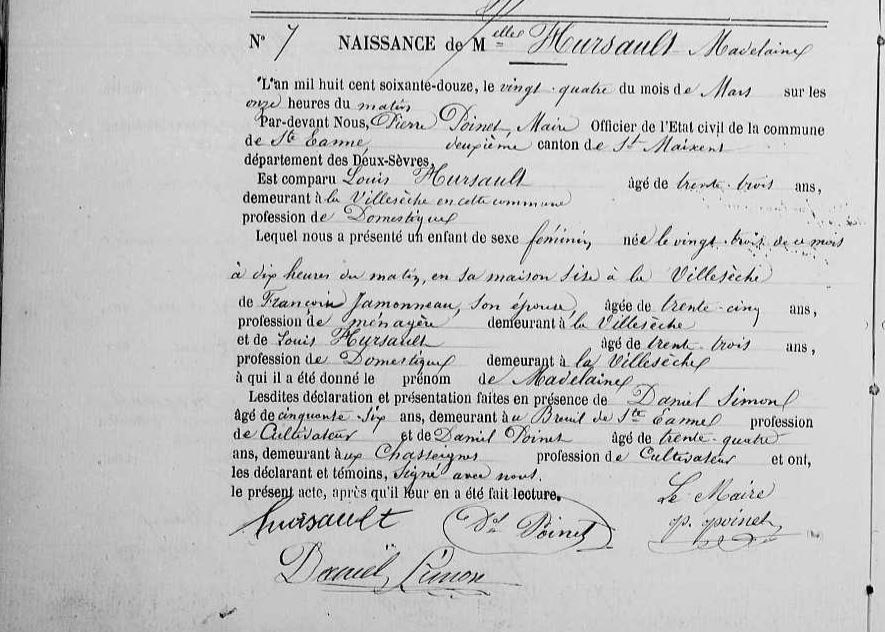 N° 7 NAISSANCE de Melle Hursault Madelaine
L'an mil huit cent soixante-douze, le vingt-quatre du mois de Mars sur les
onze heures du matin
Par-devant Nous, Pierre Poinet, Maire Officier de l'Etat civil de la commune
de Ste Eanne, deuxième canton de St Maixent
département des Deux-Sèvres,
Est comparu Louis Hursault âgé de trente-trois ans,
demeurant à la Villesèche en cette commune
profession de Domestique
Lequel nous a présenté un enfant de sexe féminin née le vingt-trois de ce mois
à dix heures du matin, en sa maison sise à la Villesèche
de Françoise Jamonneau, son épouse, âgée de trente-cinq ans,
profession de ménagère demeurant à la Villesèche
et de Louis Hursault âgé de trente-trois ans,
profession de Domestique demeurant à la Villesèche
à qui il a été donné le prénom de Madelaine
Lesdites déclaration et présentation faites en présence de Daniel Simon
âgé de cinquante-six ans, demeurant au Breuil de Ste Eanne profession
de Cultivateur et de Daniel Poinet âgé de trente-quatre
ans, demeurant aux Chasseignes profession de Cultivateur et ont,
les déclarant et témoins, signé avec nous.
le présent acte, après qu'il leur en a été fait lecture.
Le Maire
hursault Del Poinet p. poinet
Daniel Simon